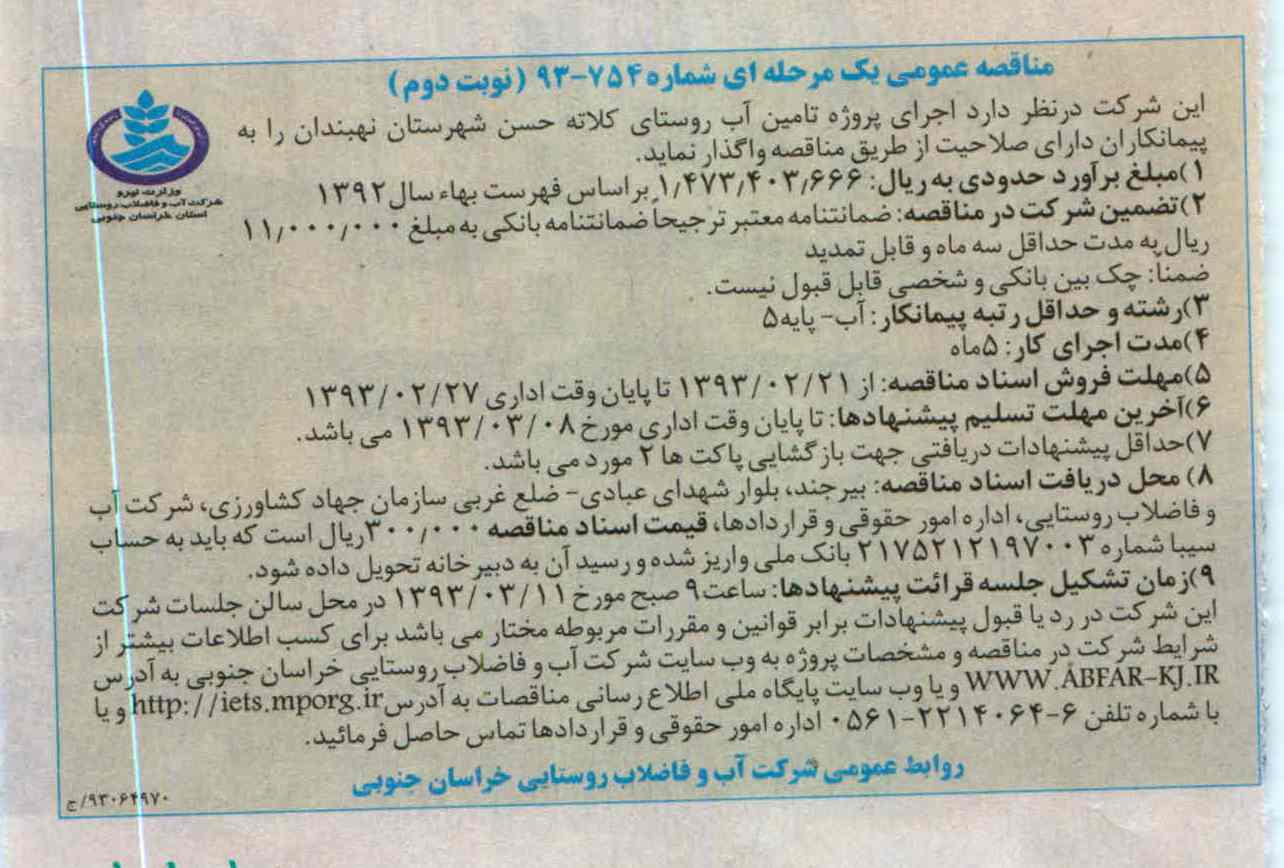 مناقصه عمومی یک مرحله ای شماره ۷۵۴-۹۳ (نوبت دوم)
وزارت نیرو
شرکت آب و فاضلاب روستایی
استان خراسان جنوبی
این شرکت درنظر دارد اجرای پروژه تامین آب روستای کلاته حسن شهرستان نهبندان را به
پیمانکاران دارای صلاحیت از طریق مناقصه واگذار نماید.
۱)مبلغ برآورد حدودی به ریال: ۱,۴۷۳,۴۰۳,۶۶۶ براساس فهرست بهاء سال ۱۳۹۲
۲)تضمین شرکت در مناقصه: ضمانتنامه معتبر ترجیحاً ضمانتنامه بانکی به مبلغ ۱۱,۰۰۰,۰۰۰
ریال به مدت حداقل سه ماه و قابل تمدید
ضمناً: چک بین بانکی و شخصی قابل قبول نیست.
۳)رشته و حداقل رتبه پیمانکار: آب- پایه۵
۴)مدت اجرای کار: ۵ماه
۵)مهلت فروش اسناد مناقصه: از ۱۳۹۳/۰۲/۲۱ تا پایان وقت اداری ۱۳۹۳/۰۲/۲۷
۶)آخرین مهلت تسلیم پیشنهادها: تا پایان وقت اداری مورخ ۱۳۹۳/۰۳/۰۸ می باشد.
۷)حداقل پیشنهادات دریافتی جهت بازگشایی پاکت ها ۲ مورد می باشد.
۸) محل دریافت اسناد مناقصه: بیرجند، بلوار شهدای عبادی- ضلع غربی سازمان جهاد کشاورزی، شرکت آب
و فاضلاب روستایی، اداره امور حقوقی و قراردادها، قیمت اسناد مناقصه ۳۰۰,۰۰۰ریال است که باید به حساب
سیبا شماره ۲۱۷۵۲۱۲۱۹۷۰۰۳ بانک ملی واریز شده و رسید آن به دبیرخانه تحویل داده شود.
۹)زمان تشکیل جلسه قرائت پیشنهادها: ساعت۹ صبح مورخ ۱۳۹۳/۰۳/۱۱ در محل سالن جلسات شرکت
این شرکت در رد یا قبول پیشنهادات برابر قوانین و مقررات مربوطه مختار می باشد برای کسب اطلاعات بیشتر از
شرایط شرکت در مناقصه و مشخصات پروژه به وب سایت شرکت آب و فاضلاب روستایی خراسان جنوبی به آدرس
WWW.ABFAR-KJ.IR و یا وب سایت پایگاه ملی اطلاع رسانی مناقصات به آدرس http://iets.mporg.ir و یا
با شماره تلفن ۶-۲۲۱۴۰۶۴-۰۵۶۱ اداره امور حقوقی و قراردادها تماس حاصل فرمائید.
روابط عمومی شرکت آب و فاضلاب روستایی خراسان جنوبی
۹۳۰۶۴۹۷۰/ج